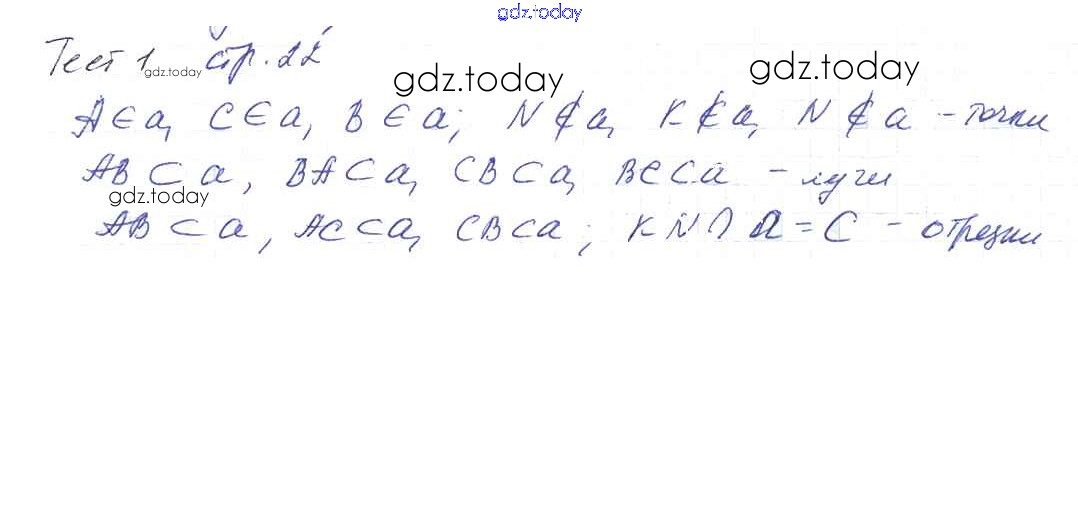 gdz.today
Тест 1 стр. 22
gdz.today
gdz.today
gdz.today
A ∈ a, C ∈ a, B ∈ a; N ∉ a, K ∉ a, N ∉ a - точки
AB ⊂ a, BA ⊂ a, CB ⊂ a, BC ⊂ a - лучи
gdz.today
AB ⊂ a, AC ⊂ a, CB ⊂ a; KN ∩ a = C - отрезки